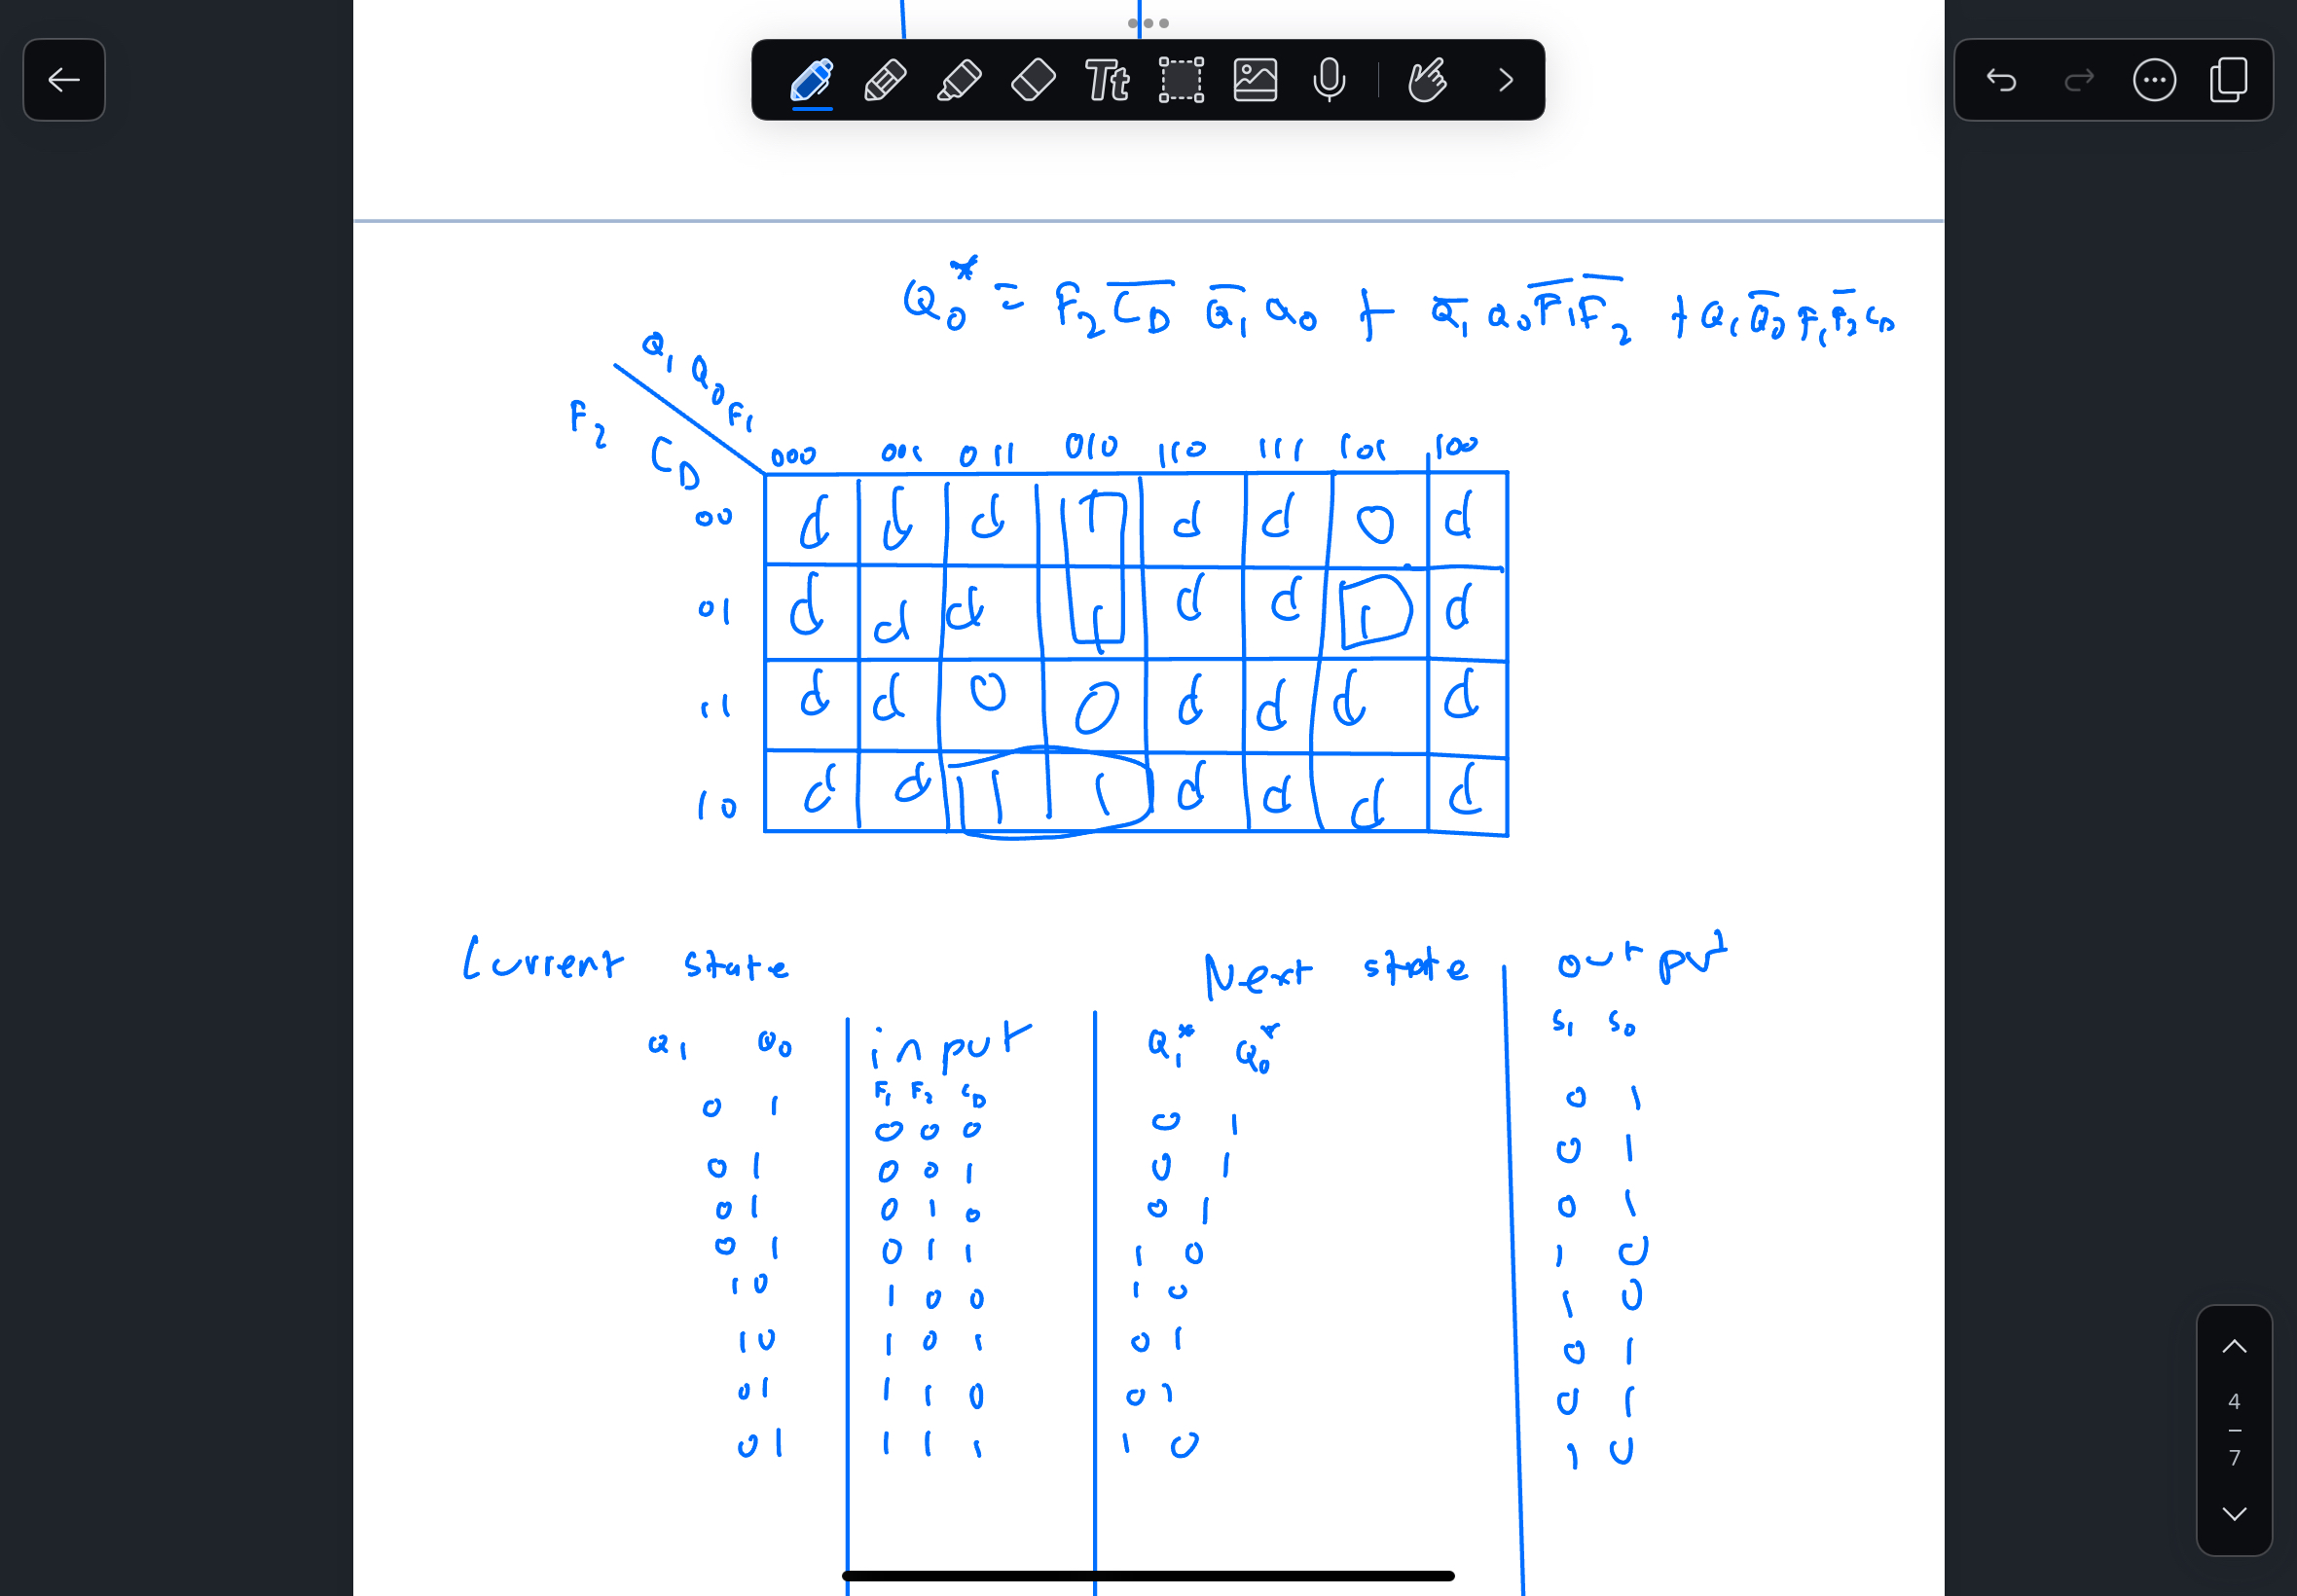 Tt
Q₀* = F₂ C̅D̅ Q̅₁ Q₀ + Q̅₁ Q₀ F̅₁ F̅₂ + Q₁ Q̅₀ F₁ F̅₂ CD
Q₁ Q₀ F₁
F₂ CD
000 001 011 010 110 111 101 100
00 d d d 1 d d 0 d
01 d d d 1 d d 1 d
11 d d 0 0 d d d d
10 d d 1 1 d d d d
Current state Next state output
Q₁ Q₀ input Q₁* Q₀* S₁ S₀
F₁ F₂ CD
0 1 0 0 0 0 1 0 1
0 1 0 0 1 0 1 0 1
0 1 0 1 0 0 1 0 1
0 1 0 1 1 1 0 1 0
1 0 1 0 0 1 0 1 0
1 0 1 0 1 0 1 0 1
0 1 1 1 0 0 1 0 1
0 1 1 1 1 1 0 1 0
4
7